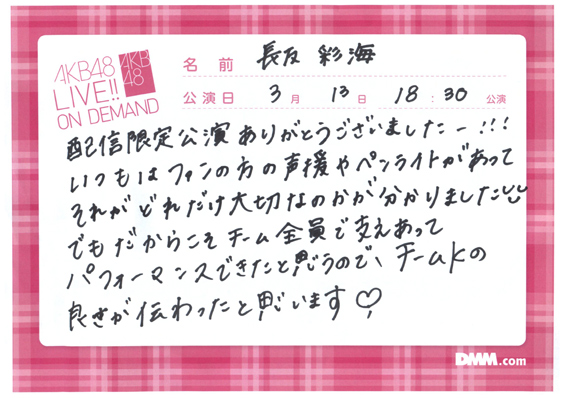 AKB48
LIVE!!
ON DEMAND
AKB
48
名前 長友 彩海
公演日 3月 13日 18:30 公演
配信限定公演ありがとうございましたー!!!
いつもはファンの方の声援やペンライトがあって
それがどれだけ大切なのかが分かりました
でもだからこそチーム全員で支えあって
パフォーマンスできたと思うので、チームKの
良さが伝わったと思います♡
DMM.com